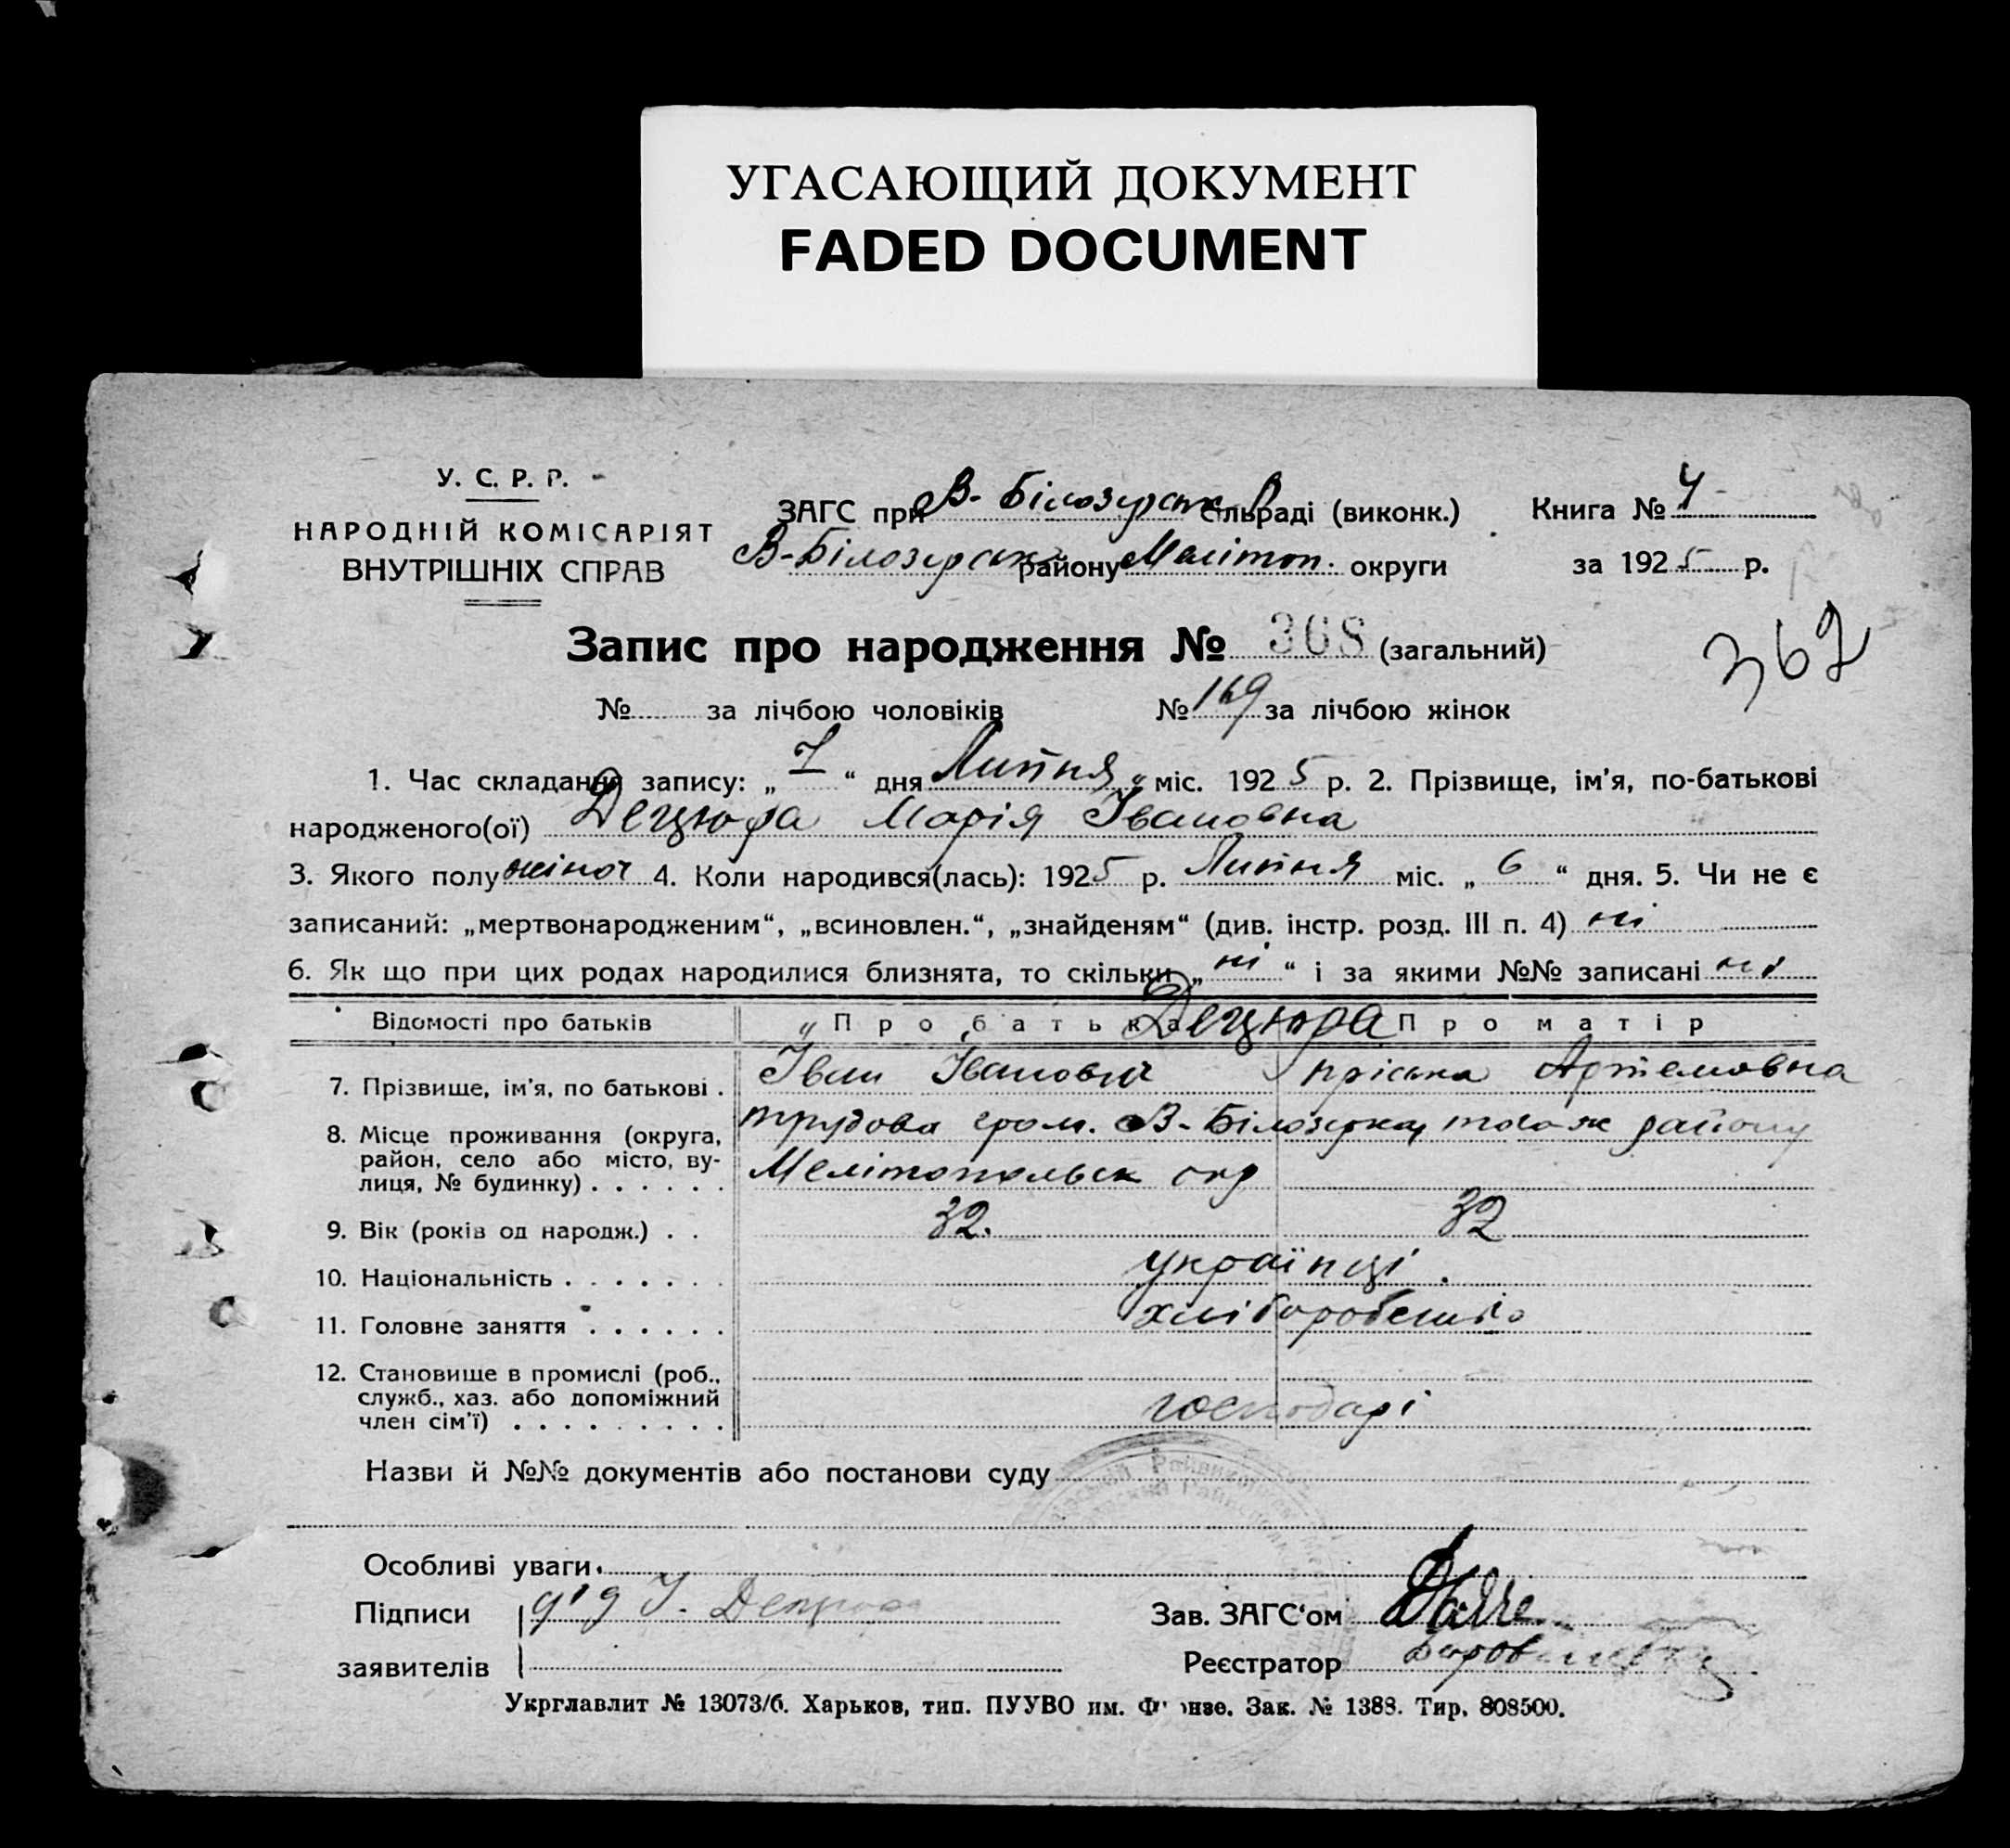 УГАСАЮЩИЙ ДОКУМЕНТ
FADED DOCUMENT
У. С. Р. Р.
НАРОДНІЙ КОМІСАРІЯТ
ВНУТРІШНІХ СПРАВ
ЗАГС при В- Білозірськ сільраді (виконк.)
В-Білозірськ району Мелітоп. округи
Книга № 4
за 1925 р.
Запис про народження № 368 (загальний)
362
№ за лічбою чоловіків № 169 за лічбою жінок
1. Час складання запису: „ 7 “ дня Липня міс. 1925 р. 2. Прізвище, ім'я, по-батькові
народженого(ої) Децюра Марія Івановна
3. Якого полу жіноч 4. Коли народився(лась): 1925 р. Липня міс. „ 6 “ дня. 5. Чи не є
записаний: „мертвонародженим“, „всиновлен.“, „знайденям“ (див. інстр. розд. III п. 4) ні
6. Як що при цих родах народилися близнята, то скільки „ ні “ і за якими №№ записані ні
Відомості про батьків Про батька Децюра Про матір
7. Прізвище, ім'я, по батькові . Іван Іванович Пріська Артемовна
8. Місце проживання (округа, трудова гром. В-Білозірка, того ж району
район, село або місто, ву-
лиця, № будинку) . . . . . . Мелітопольськ окр
9. Вік (років од народж.) . . 32. 32
10. Національність . . . . . . . українці.
11. Головне заняття . . . . . . хлібороби
12. Становище в промислі (роб.,
служб., хаз. або допоміжний
член сім'ї) . . . . . . . . . господарі
Назви й №№ документів або постанови суду
Особливі уваги
Підписи І. Децюра
заявителів
Зав. ЗАГС'ом
Реєстратор
Укрглавлит № 13073/б. Харьков, тип. ПУУВО им. Фрунзе. Зак. № 1388. Тир. 808500.